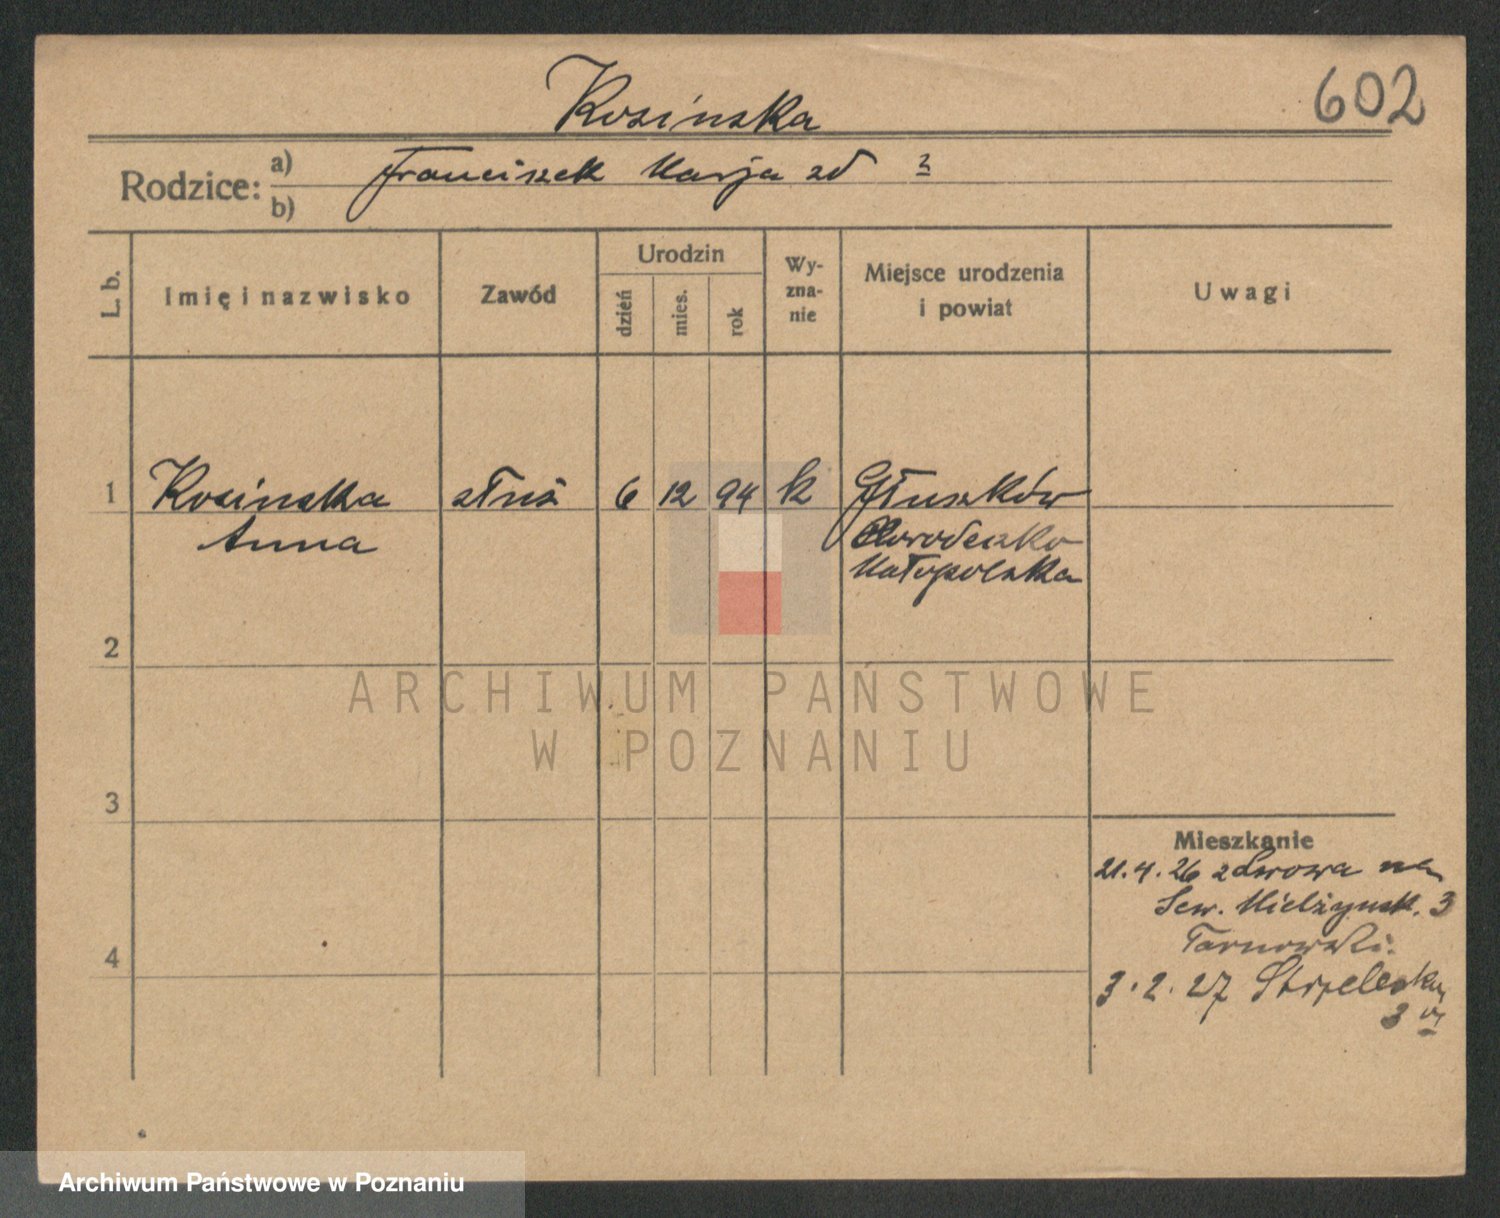 602
Kosinska
Rodzice: a) Franciszek Marja zd 3
b)
L. b.
Imię i nazwisko
Zawód
Urodzin
dzień
mies.
rok
Wy-
zna-
nie
Miejsce urodzenia
i powiat
Uwagi
1 Kosinska służ 6 12 94 k Głuszków
Anna Horodeszko
Małopolska
2
ARCHIWUM PAŃSTWOWE
W POZNANIU
3
Mieszkanie
21.4.26 z Lwowa na
Sew. Mielżyńsk. 3
Tarnowski.
4
3.2.27 Strzelecka
3
Archiwum Państwowe w Poznaniu